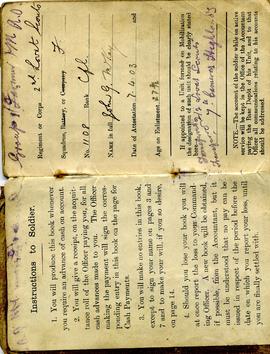 Regiment or Corps 2nd Lovat Scouts
Squadron, Battery, or Company F
No. 1108 Rank Cpl.
Name in full John G.
Date of Attestation 7.4.03
Age on Enlistment
If appropriated to a Unit formed on Mobilization
the designation of such unit should be clearly stated
NOTE.—The account of the soldier while on active
service will be kept in the Office of the Accountant
paying the Base Depot of his Unit, and to that
Officer all communications relating to his accounts
should be addressed.
Instructions to Soldier.
1. You will produce this book whenever
you require an advance of cash on account.
2. You will give a receipt, on the acquit-
tance roll of the Officer paying you, for all
cash advances made to you. The Officer
making the payment will sign the corres-
ponding entry in this book on the page for
Cash Payments.
3. You will make no entries in this book,
except to sign your name on pages 3 and
7 and to make your will, if you so desire,
on page 14.
4. Should you lose the book you should
at once report the loss to your Command-
ing Officer. A new book will be obtained,
if possible, from the Accountant, but it
must be understood that no cash can be
issued in respect of the period before the
date on which you report your loss, until
you are finally settled with.